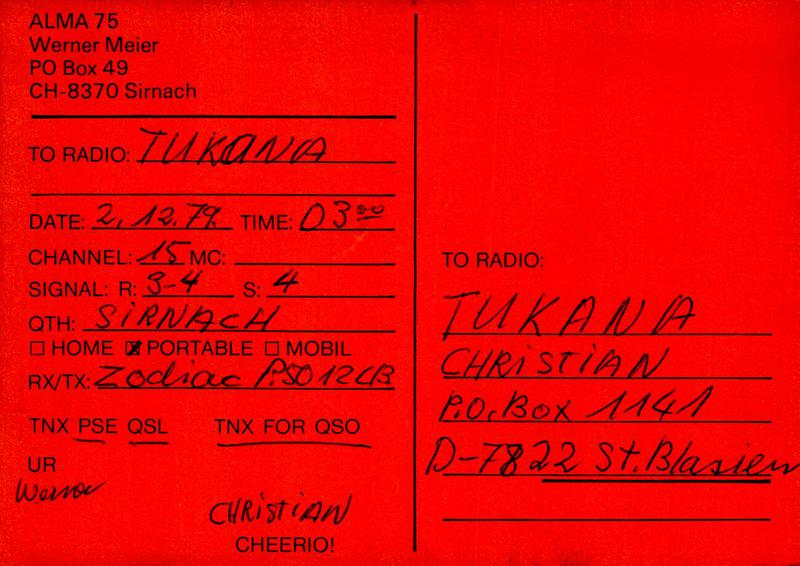 ALMA 75
Werner Meier
PO Box 49
CH-8370 Sirnach
TO RADIO: TUKANA
DATE: 2.12.79. TIME: 03⁰⁰
CHANNEL: 15 MC:
SIGNAL: R: 3-4 S: 4
QTH: SIRNACH
☐ HOME ☒ PORTABLE ☐ MOBIL
RX/TX: Zodiac P.5012CB
TNX PSE QSL TNX FOR QSO
UR
Werner
CHRISTIAN
CHEERIO!
TO RADIO:
TUKANA
CHRISTIAN
P.O. Box 1141
D-7822 St. Blasien